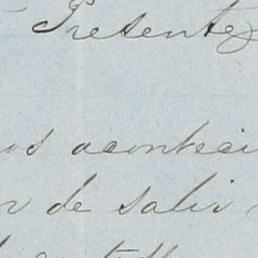 Presente
os aconteci
r de salir